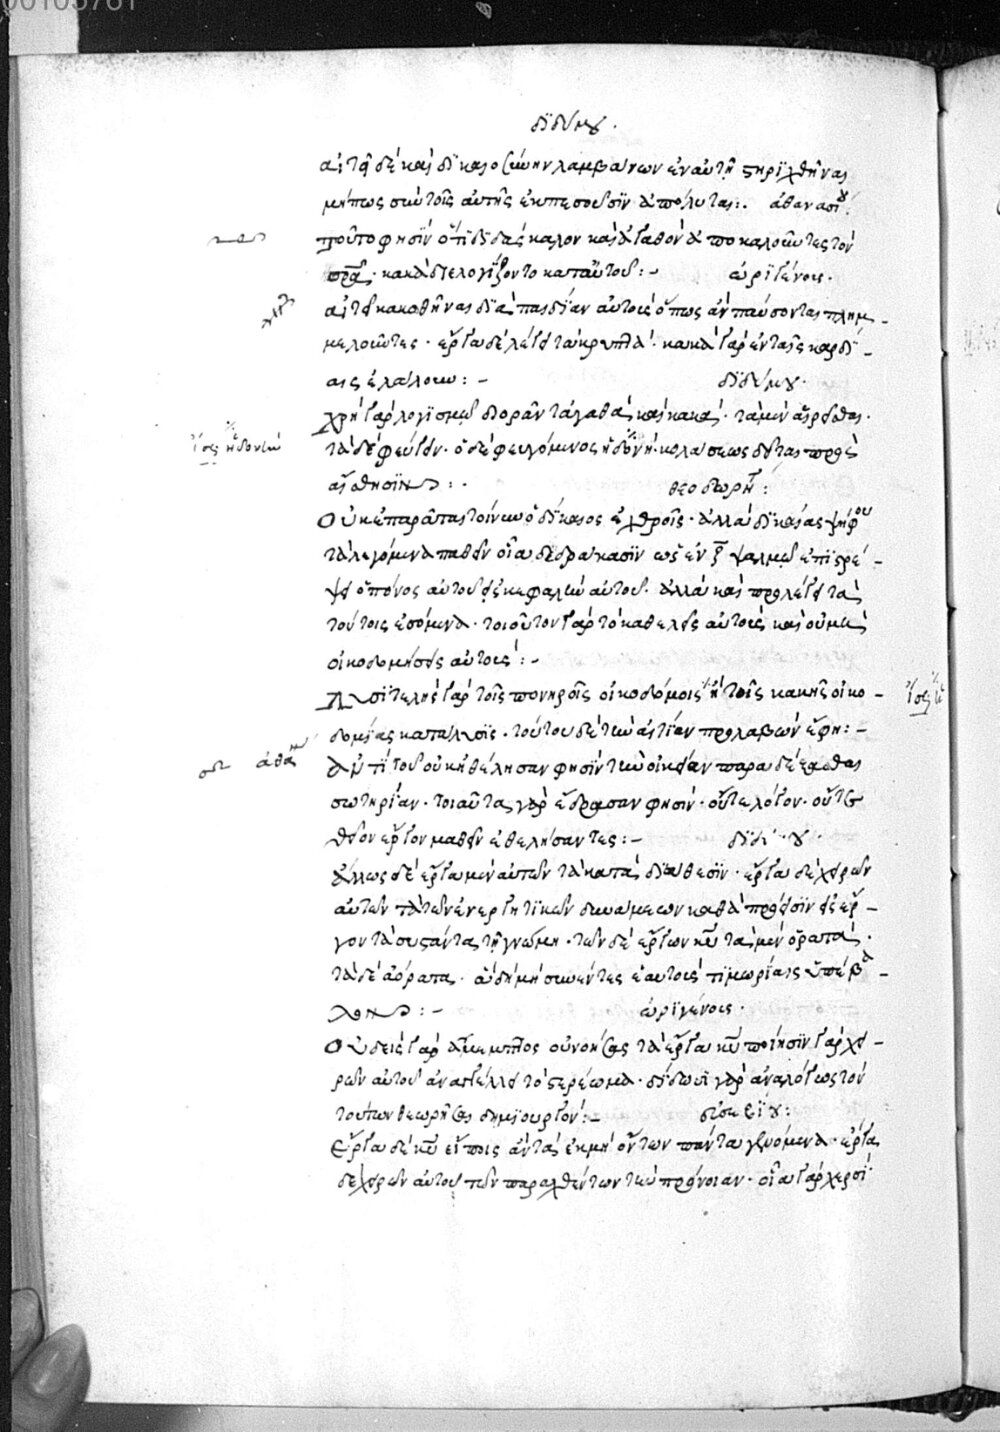 00105761
διδύμου.
αἰτεῖ δὲ καὶ δίκαιος ζωὴν λαμβάνων ἐν αὐτῇ στηριχθῆναι
μήπως σὺν τοῖς αὐτῆς ἐκπεσοῦσιν ἀπόληται:. ἀθανασίου:
τοῦτο φησὶν ὅτι διδάσκαλον καὶ ἀγαθὸν ἀποκαλοῦντες τὸν
σρα. κακὰ διελογίζοντο κατ' αὐτοῦ:- ὠριγένους.
αἰτεῖ κακωθῆναι αὐτοὺς ὅπως ἂν παύσονται πλημ-
μελοῦντες. ἔργα δὲ λέγει τὰ κρυπτά. κακὰ γὰρ ἐν ταῖς καρδί-
αις ἐλάλουν:- διδύμου.
χρὴ γὰρ λογισμῷ διορᾶν τἀγαθὰ καὶ κακά. τὰ μὲν αἱρεῖσθαι.
ἴσως ἡδονῶν
τὰ δὲ φεύγειν. ὁ δὲ φευγόμενος ἡδονὴν. κολάσεως δεῖται πρὸς
αἴσθησιν:. θεοδωρήτου:
Οὐκ ἐπαρᾶται τοίνυν ὁ δίκαιος ἐχθροῖς. ἀλλὰ δικαίας ψήφου
τὰ λεγόμενα παθεῖν οἷα δεδράκασιν ὡς ἐν ζ ψαλμῷ ἐπιστρέ-
ψει ὁ πόνος αὐτοῦ εἰς κεφαλὴν αὐτοῦ. ἀλλὰ καὶ προλέγει τὰ
τούτοις ἐσόμενα. τοιοῦτον γὰρ τὸ καθελεῖς αὐτοὺς καὶ οὐ μὴ
οἰκοδομήσεις αὐτούς:-
Λυσιτελὴς γὰρ τοῖς πονηροῖς οἰκοδόμοις ἡ τῆς κακῆς οἰκο-
δομίας κατάλυσις. τούτου δὲ τὴν αἰτίαν προλαβὼν ἔφη:-
ἀθαν
ἀντὶ τοῦ οὐκ ἠθέλησαν φησὶν τὴν οἰκείαν παραδέξασθαι
σωτηρίαν. τοιαῦτα γὰρ ἔδρασαν φησίν. οὔτε λόγον. οὔτε
θεῖον ἔργον μαθεῖν ἐθελήσαντες:- διδύμου.
ἄλλως δὲ ἔργα μὲν αὐτῶν τὰ κατὰ διάθεσιν. ἔργα δὲ χειρῶν
αὐτῶν τὰ τῶν ἐνεργητικῶν δυνάμεων καθὰ πρόεισιν εἰς ἔρ-
γον τὰ συστάντα τῇ γνώμῃ. τῶν δὲ ἔργων κυ τὰ μὲν ὁρατά.
τὰ δὲ ἀόρατα. ἃ δὴ μὴ συνέντες ἑαυτοὺς τιμωρίαις ὑπέβα-
λον:- ὠριγένους.
Οὐδεὶς γὰρ ἄμεμπτος οὐ νοήσας τὰ ἔργα κυ ποίησιν γὰρ χει-
ρῶν αὐτοῦ ἀναγγέλλει τὸ στερέωμα. δίδωσι γὰρ ἀναλόγως τὸν
τούτων θεωρῆσαι δημιουργόν:- εὐσεβίου:
Ἔργα δὲ κυ εἴποις ἂν τὰ ἐκ μὴ ὄντων πάντα γενόμενα. ἔργα
δὲ χειρῶν αὐτοῦ τῶν παραχθέντων τὴν πρόνοιαν. οἷα γὰρ χερσὶ